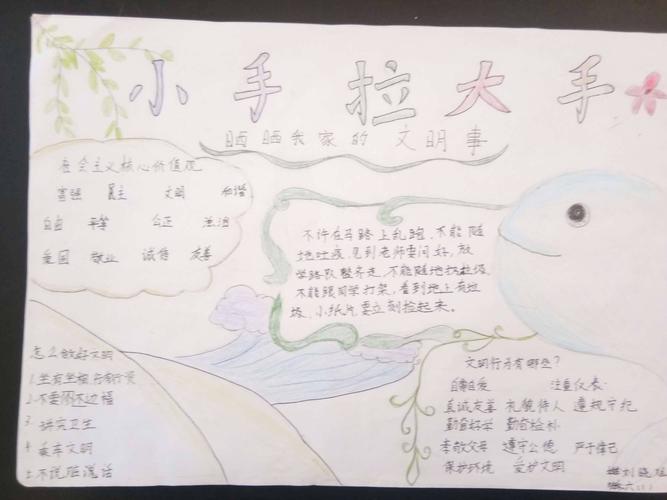 小手拉大手
晒晒我家的文明事
社会主义核心价值观
富强 民主 文明 和谐
自由 平等 公正 法治
爱国 敬业 诚信 友善
不许在马路上乱跑，不能随
地吐痰，见到老师要问好，放
学路队整齐走，不能随地扔垃圾
不能跟同学打架，看到地上有垃
圾，小纸片要立刻捡起来。
怎么做好文明
1.坐有坐相 行有行员
2.不要不边幅
3.讲究卫生
4.乘车文明
5.不说脏话
文明行为有哪些?
自尊自爱 注重仪表
真诚友善 礼貌待人 遵规守纪
勤奋好学 勤奋检朴
孝敬父母 遵守公德 严于律己
保护环境 爱护文明
刘晓
六(1)